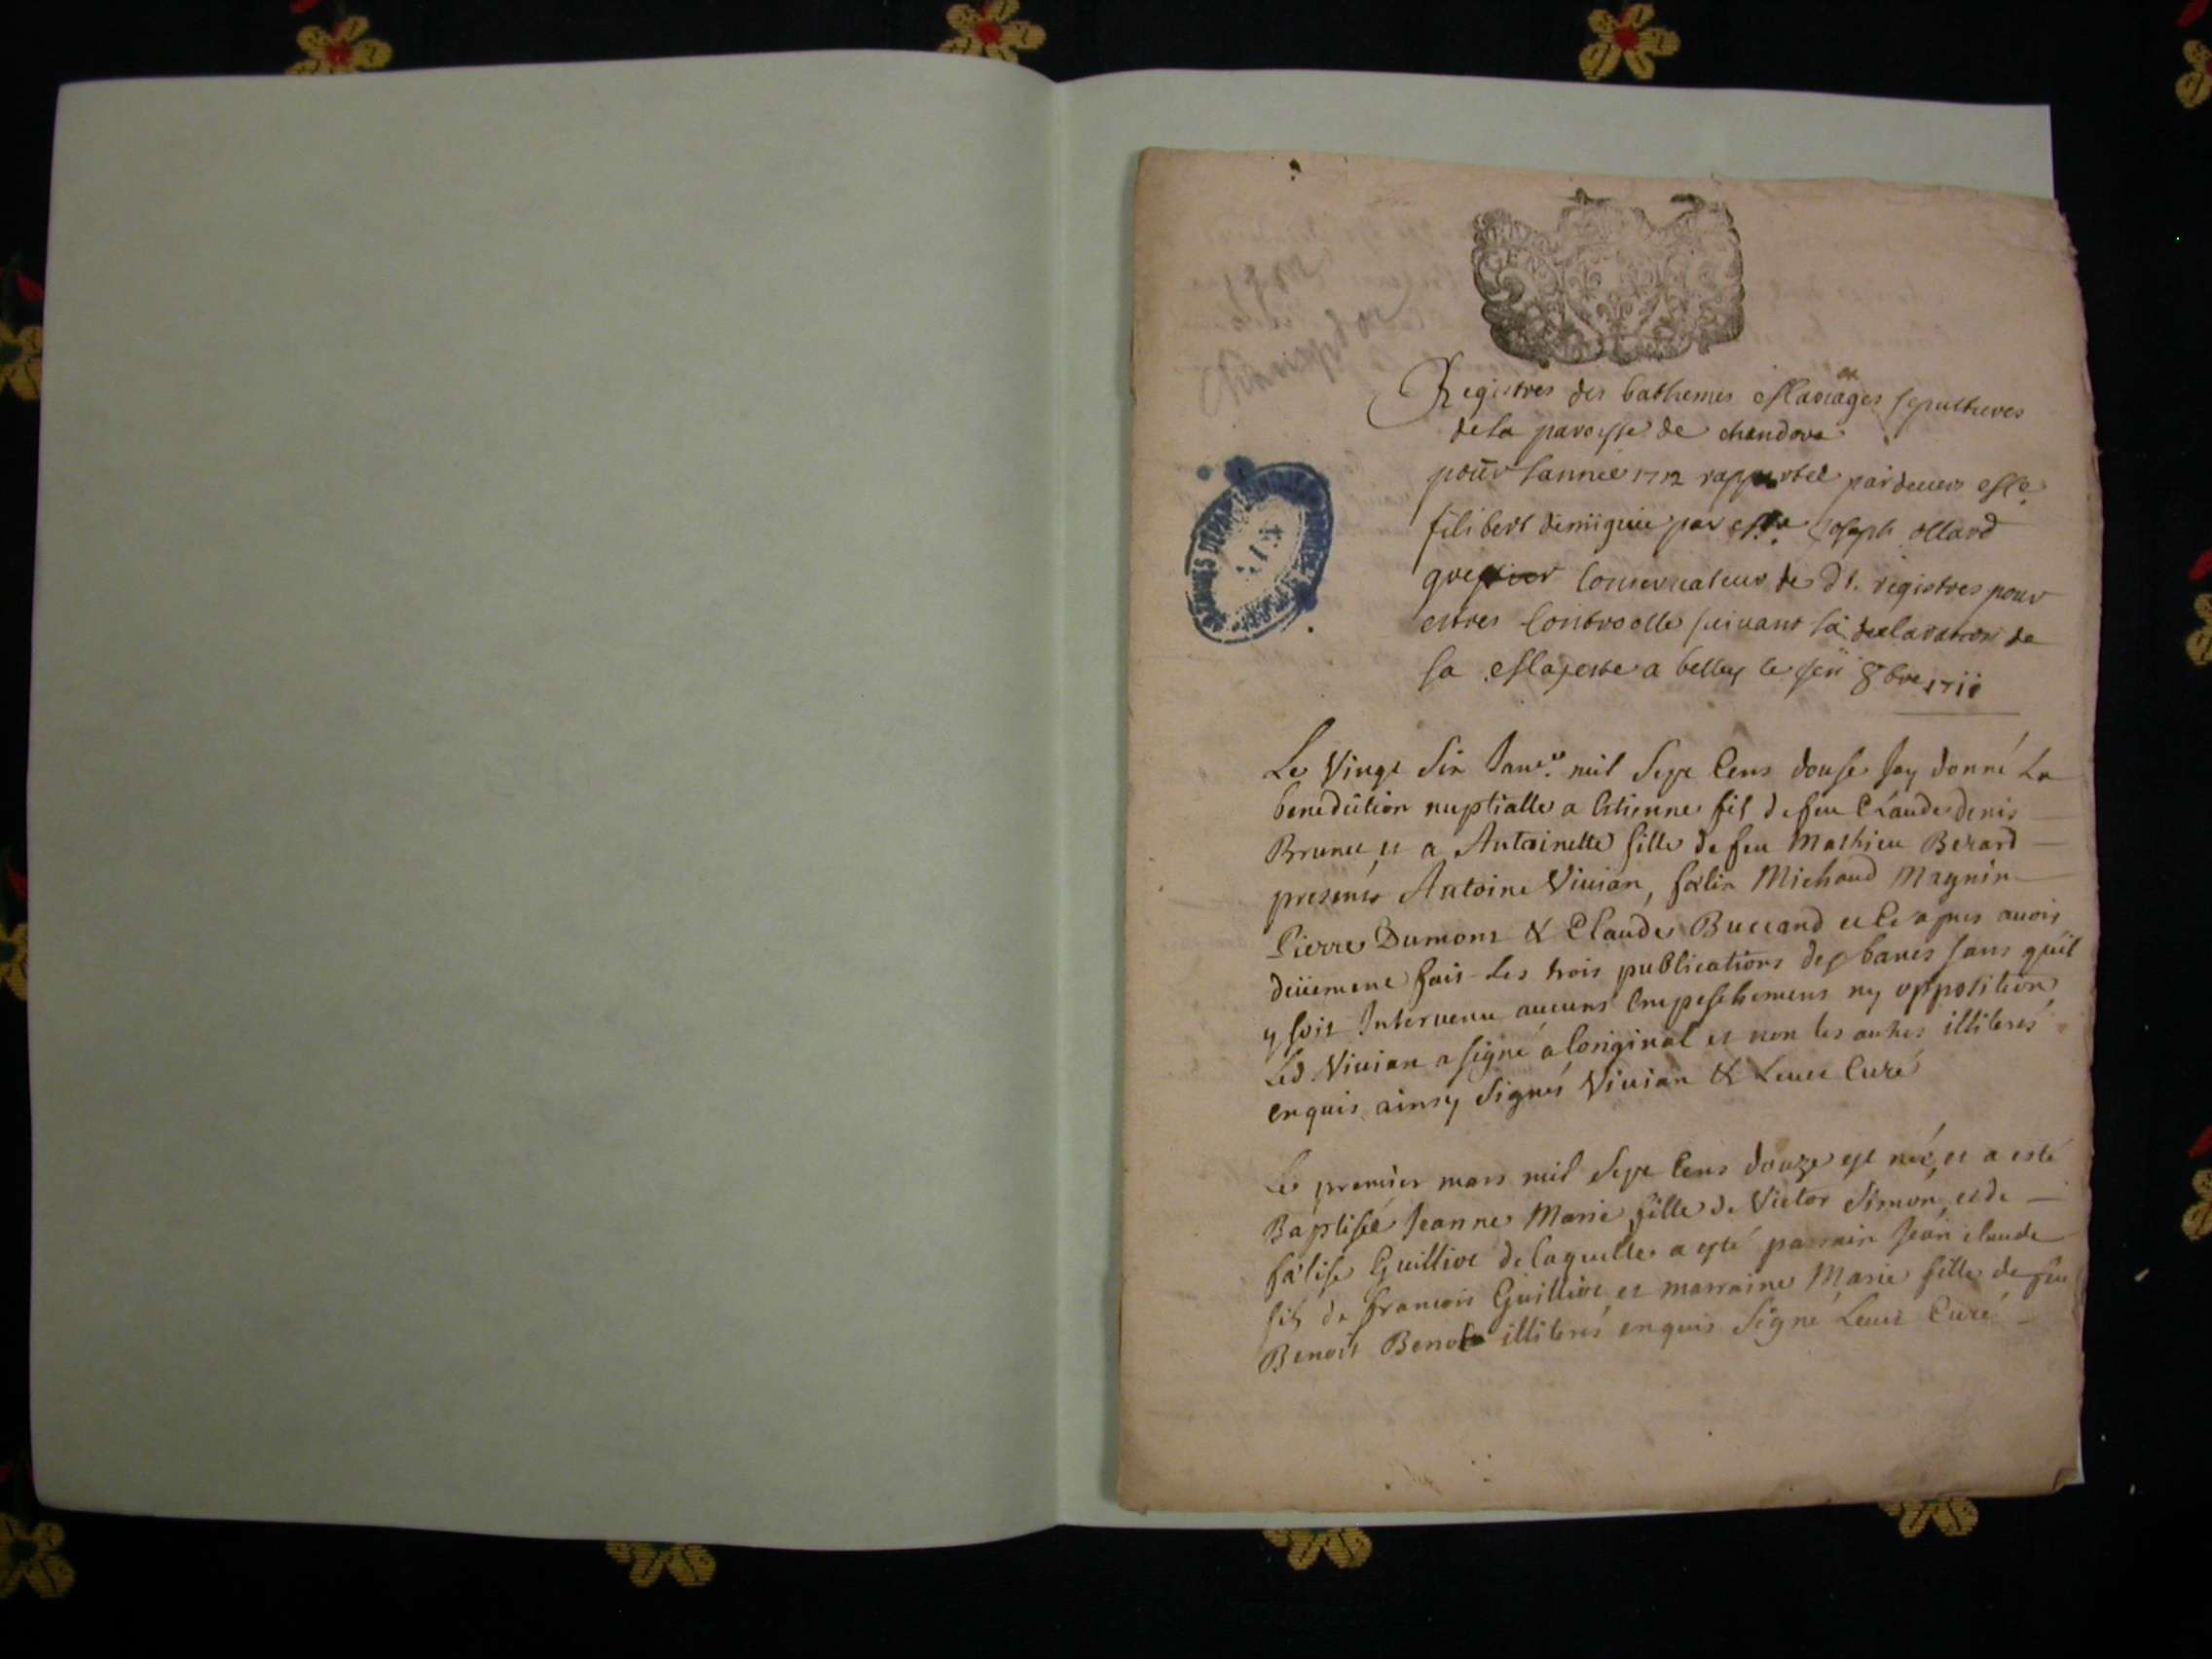 GEN
Registres des bathemes Mariages et sepultures
de la paroisse de chandore
pour lannee 1712 rapportee pardevers Me
filibert par Me Joseph ollard
greffier Conservateur de dt. registres pour
estres Controolle suivant la declaration de
sa Majeste a belley le 8bre 1711
Le Vingt Six Janer. mil Sept Cens douse Jay donné La
benediction nuptialle a Estienne fils de feu Claude denis
Brunet et a Antoinette fille de feu Mathieu Berard
presents Antoine Vivian, félix Michaud Magnin
Pierre Dumont & Claude Buccand et Ce apres avoir
deüement fait Les trois publications des bancs sans quil
y soit Intervenu aucuns Empeschemens ny opposition
Led. Vivian a signé a loriginal et non les autres illiterés
enquis ainsy Signés Vivian & Curé
Le premier mars mil Sept Cens douze est née, et a esté
Baptisée Jeanne Marie fille de Victor Simon et de
félise Guilliot de laquelle a esté parrain Jean claude
fils de francois Guilliot et marraine Marie fille de feu
Benoit illiterés enquis Signé Curé